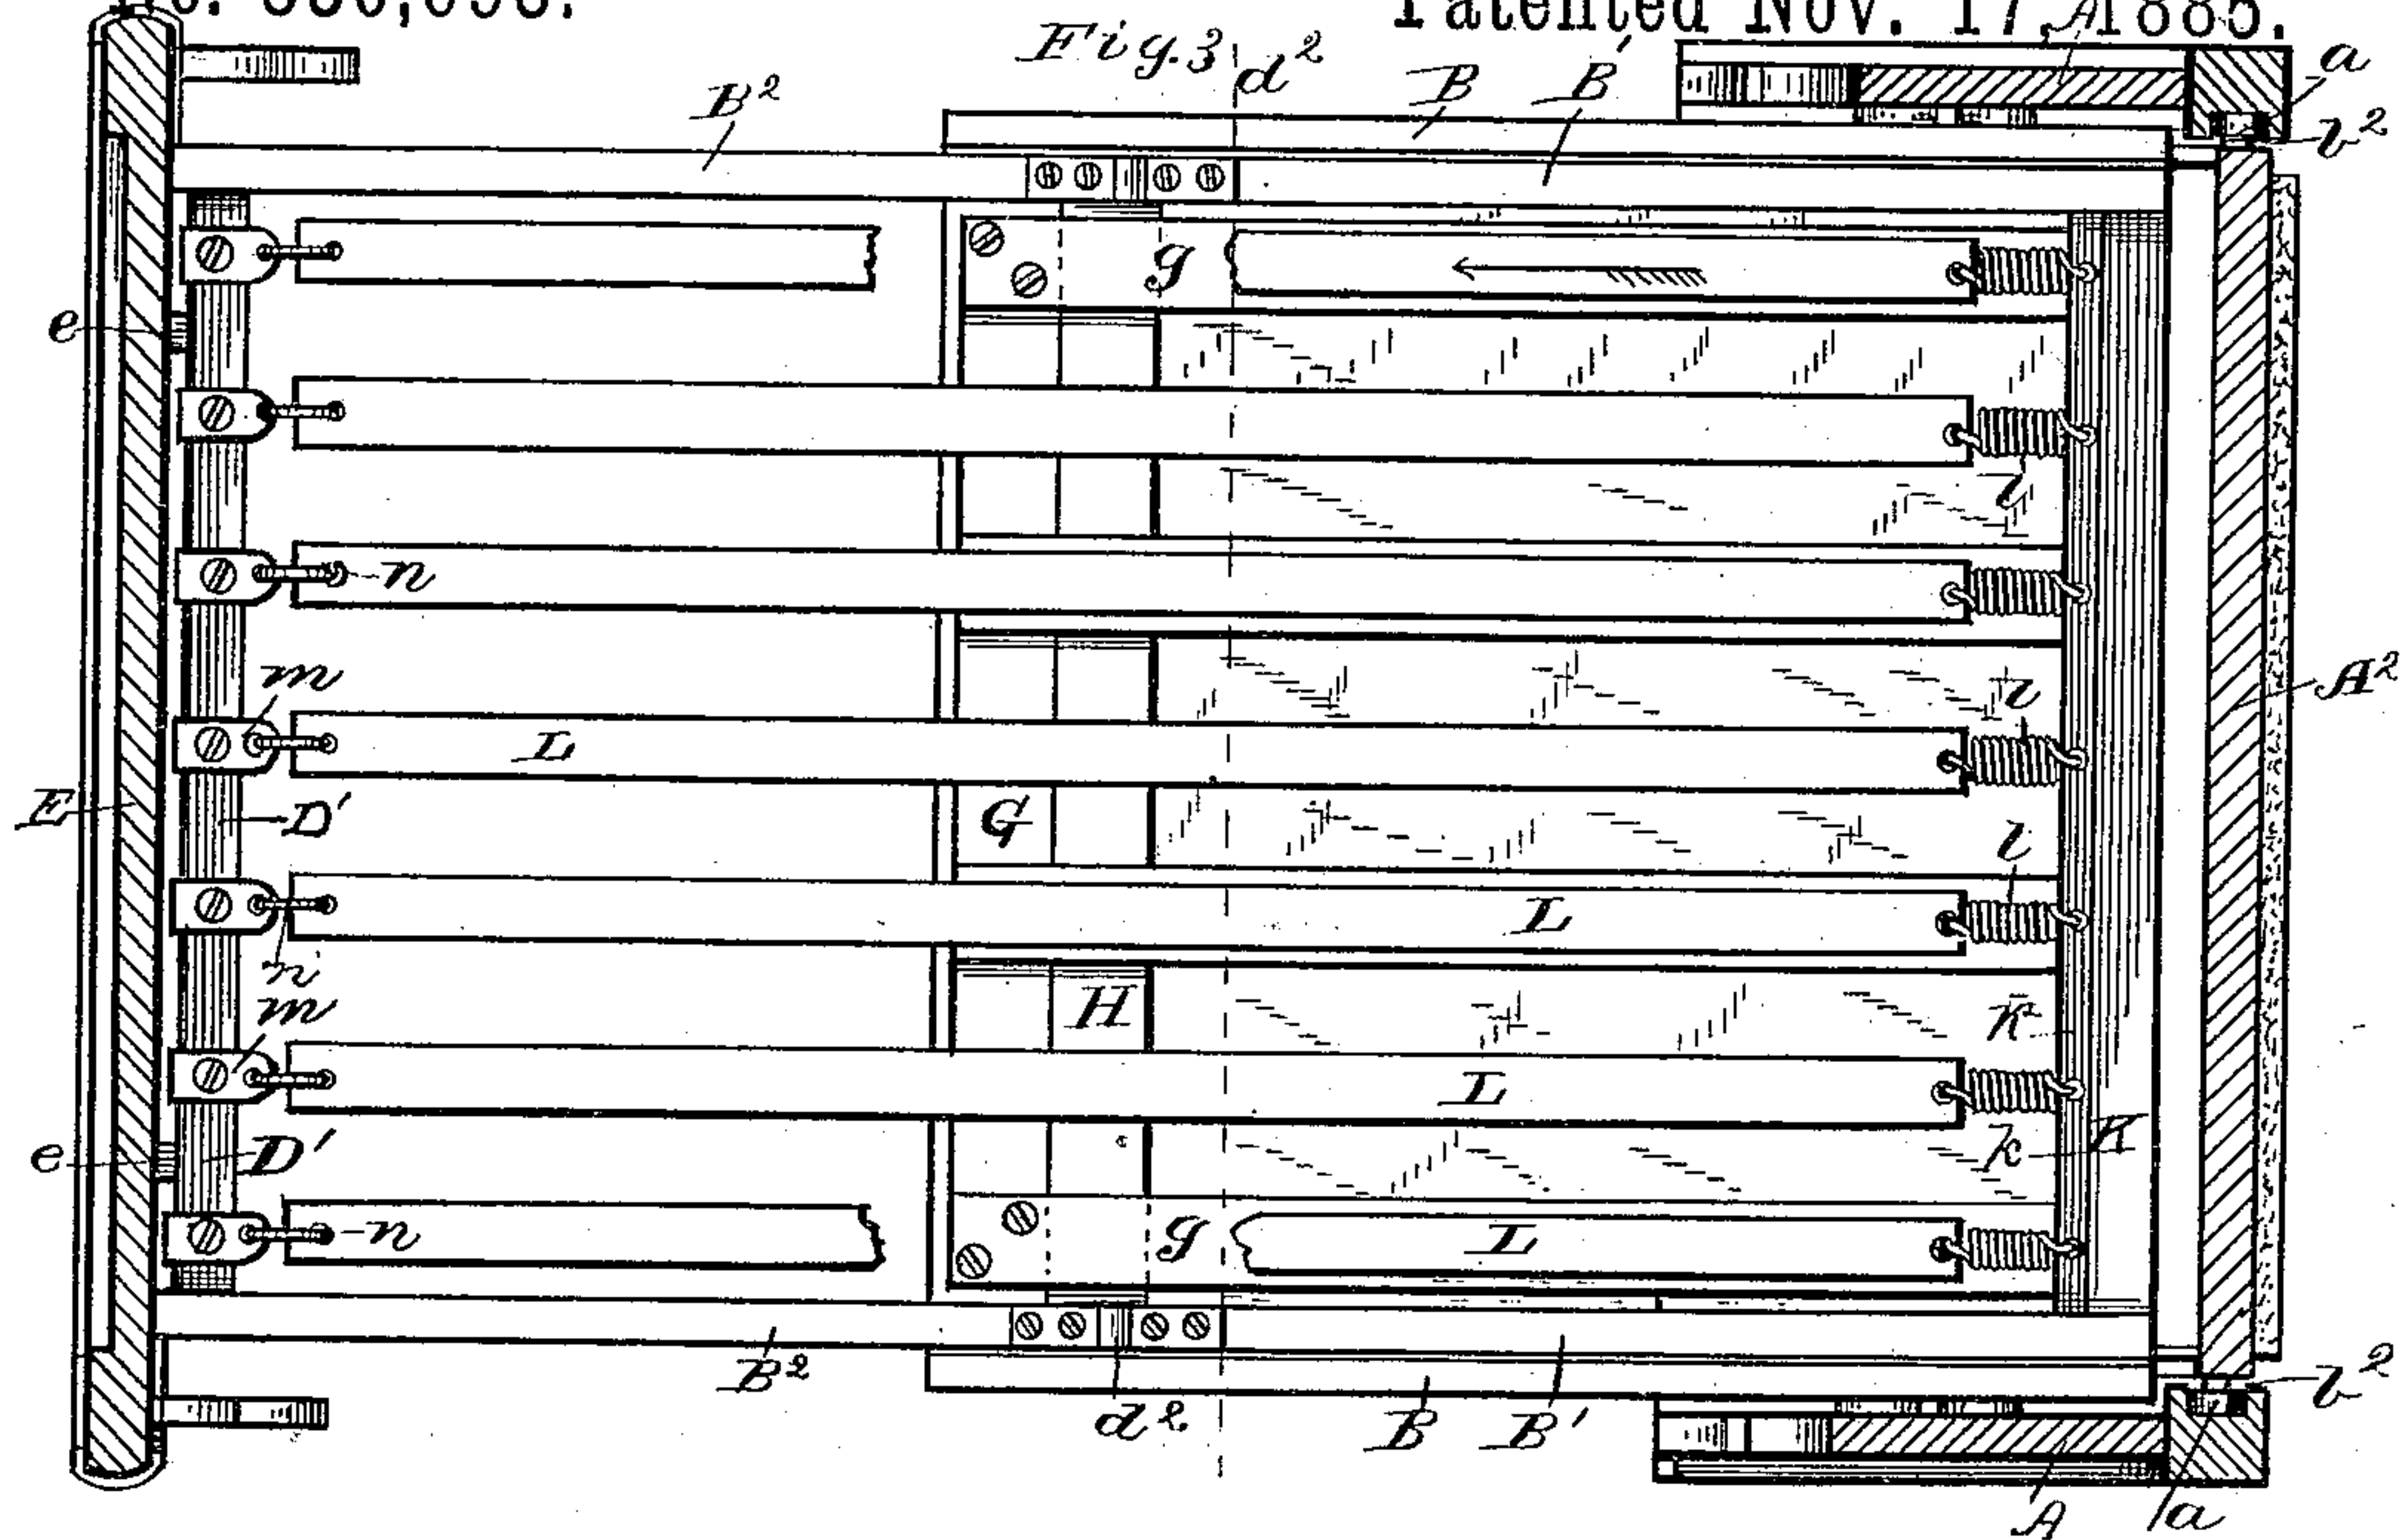 Patented Nov. 17, 1885.
Fig. 3
d²
B
B'
A
a
b²
B²
g
e
l
n
m
l
A²
L
E
D'
G
l
L
n
m
H
k
L
e
D'
k
K
n
g
L
B²
d²
B
B'
b²
A
a